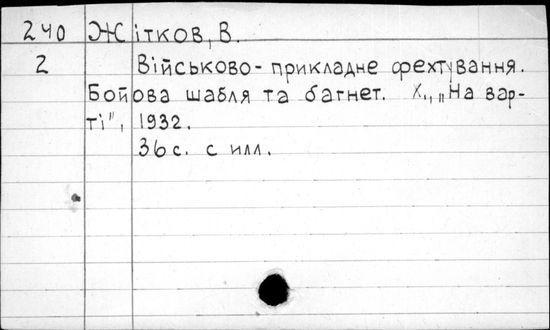 240 Жітков, В.
2 Військово-прикладне фехтування.
Бойова шабля та багнет. Х., „На вар-
ті", 1932.
36 с. с илл.